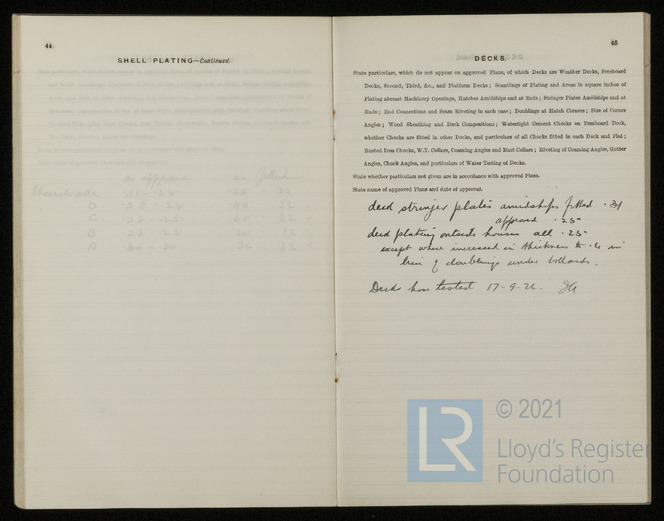 44
SHELL PLATING—Continued.
as approved as fitted
45
DECKS.
State particulars, which do not appear on approved Plans, of which Decks are Weather Decks, Freeboard
Decks, Second, Third, &c., and Platform Decks; Scantlings of Plating and Areas in square inches of
Plating abreast Machinery Openings, Hatches Amidships and at Ends; Stringer Plates Amidships and at
Ends; End Connections and Seam Riveting in each case; Doublings at Hatch Corners; Size of Corner
Angles; Wood Sheathing and Deck Compositions; Watertight Cement Chocks on Freeboard Deck,
whether Chocks are fitted in other Decks, and particulars of all Chocks fitted in each Deck and Flat;
Riveted Iron Chocks, W.T. Collars, Coaming Angles and Mast Collars; Riveting of Coaming Angles, Gutter
Angles, Chock Angles, and particulars of Water Testing of Decks.
State whether particulars not given are in accordance with approved Plans.
State name of approved Plans and date of approval.
deck stringer plates amidships fitted .31
approved .25
deck plating outside houses all .25
except where increased in thickness to in
lieu of doublings under bollards.
Decks hose tested 17-9-2
LR
© 2021
Lloyd's Register
Foundation